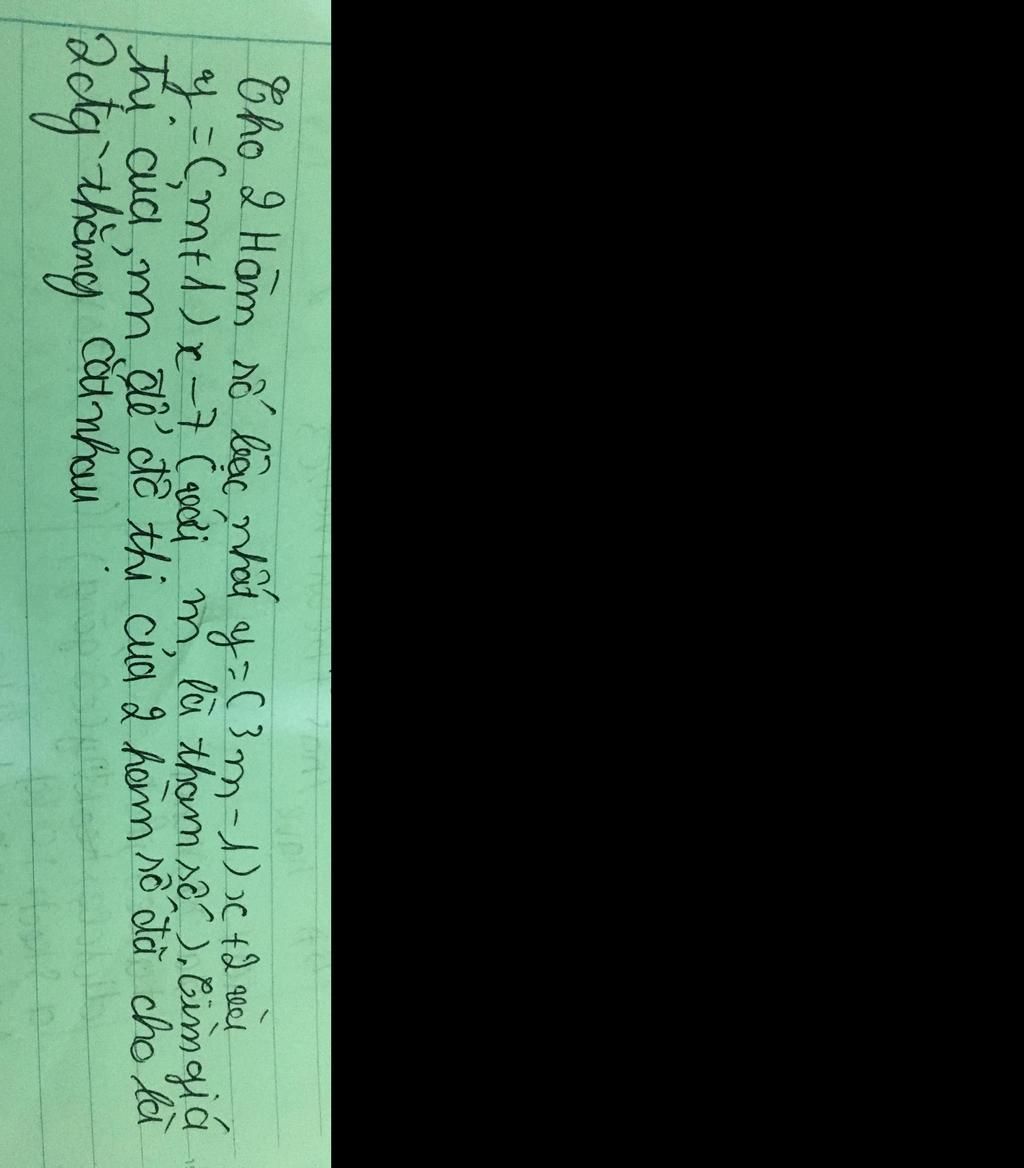 Cho 2 Hàm số bậc nhất y = (3m - 1)x + 2 và
y = (m + 1)x - 7 (với m là tham số). Tìm giá
trị của m để đồ thị của 2 hàm số đã cho là
2 đg thẳng cắt nhau